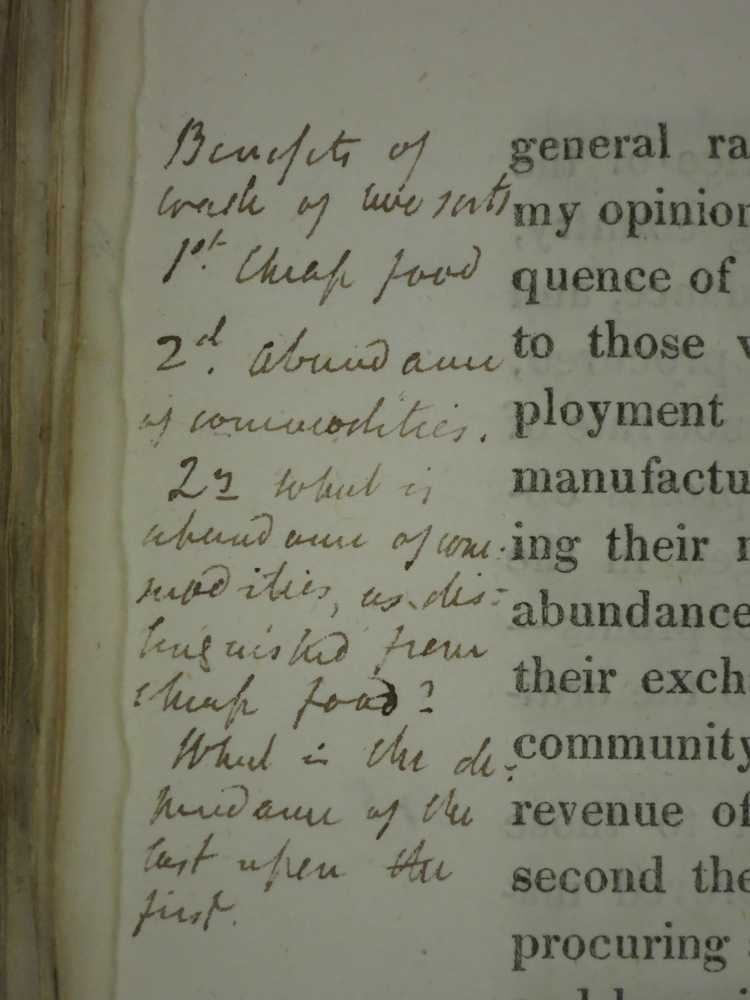 Benefits of
trade of two sorts
1st. Cheap food
2d. abundance
of commodities.
What is
abundance of com-
modities, as dis-
tinguished from
cheap food?
What is the de-
pendance of the
last upon the
first.
general ra
my opinion
quence of
to those
ployment
manufactu
ing their
abundance
their exch
community
revenue of
second the
procuring